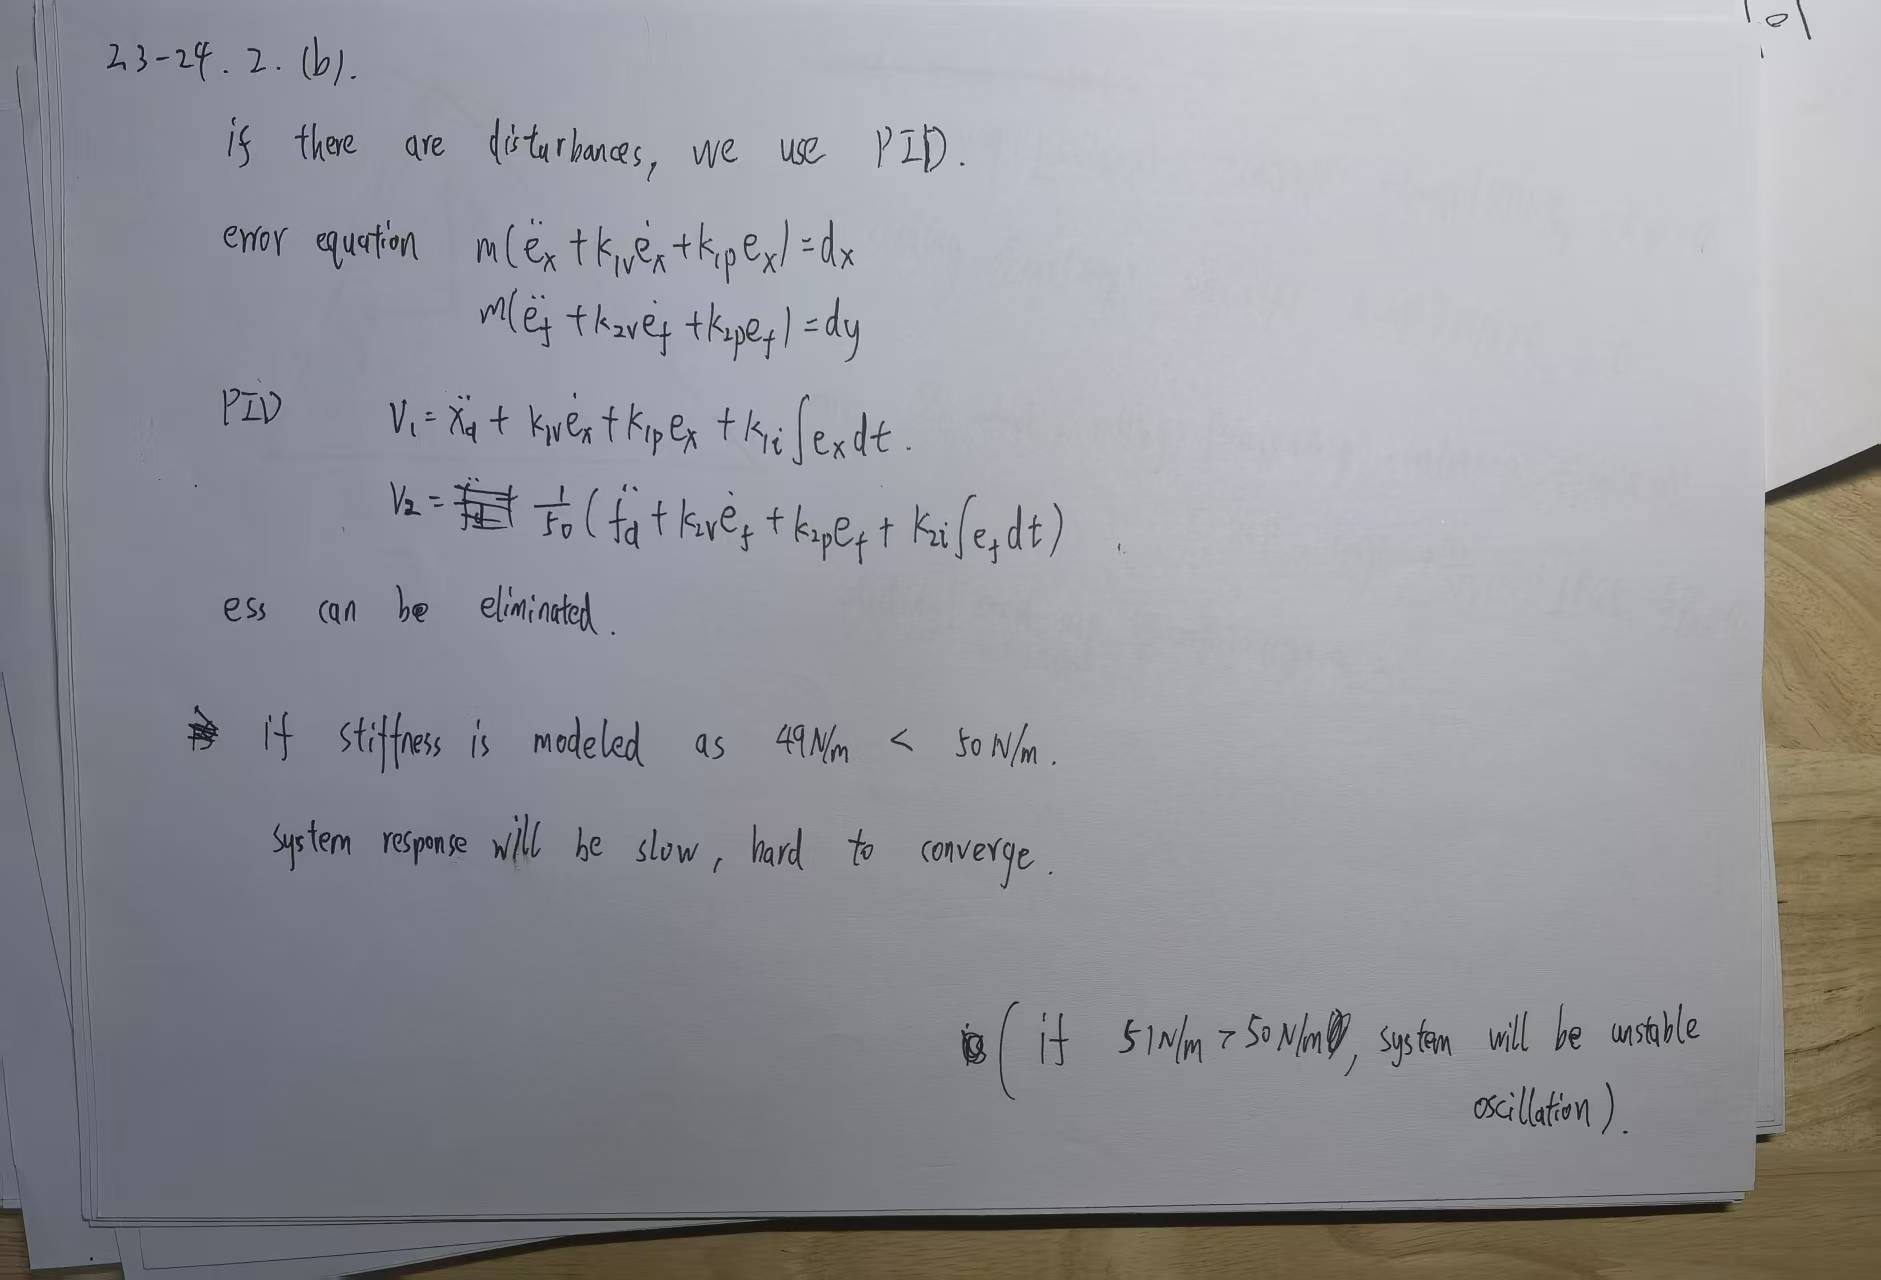 101
23-24. 2. (b).
if there are disturbances, we use PID.
error equation m(ëx + k1v ėx + k1p ex) = dx
m(ëf + k2v ėf + k2p ef) = dy
PID V1 = ẍd + k1v ėx + k1p ex + k1i ∫ex dt.
V2 = 1/50 (f̈d + k2v ėf + k2p ef + k2i ∫ef dt)
ess can be eliminated.
if stiffness is modeled as 49N/m < 50N/m.
system response will be slow, hard to converge.
(if 51N/m > 50N/m, system will be unstable
oscillation).